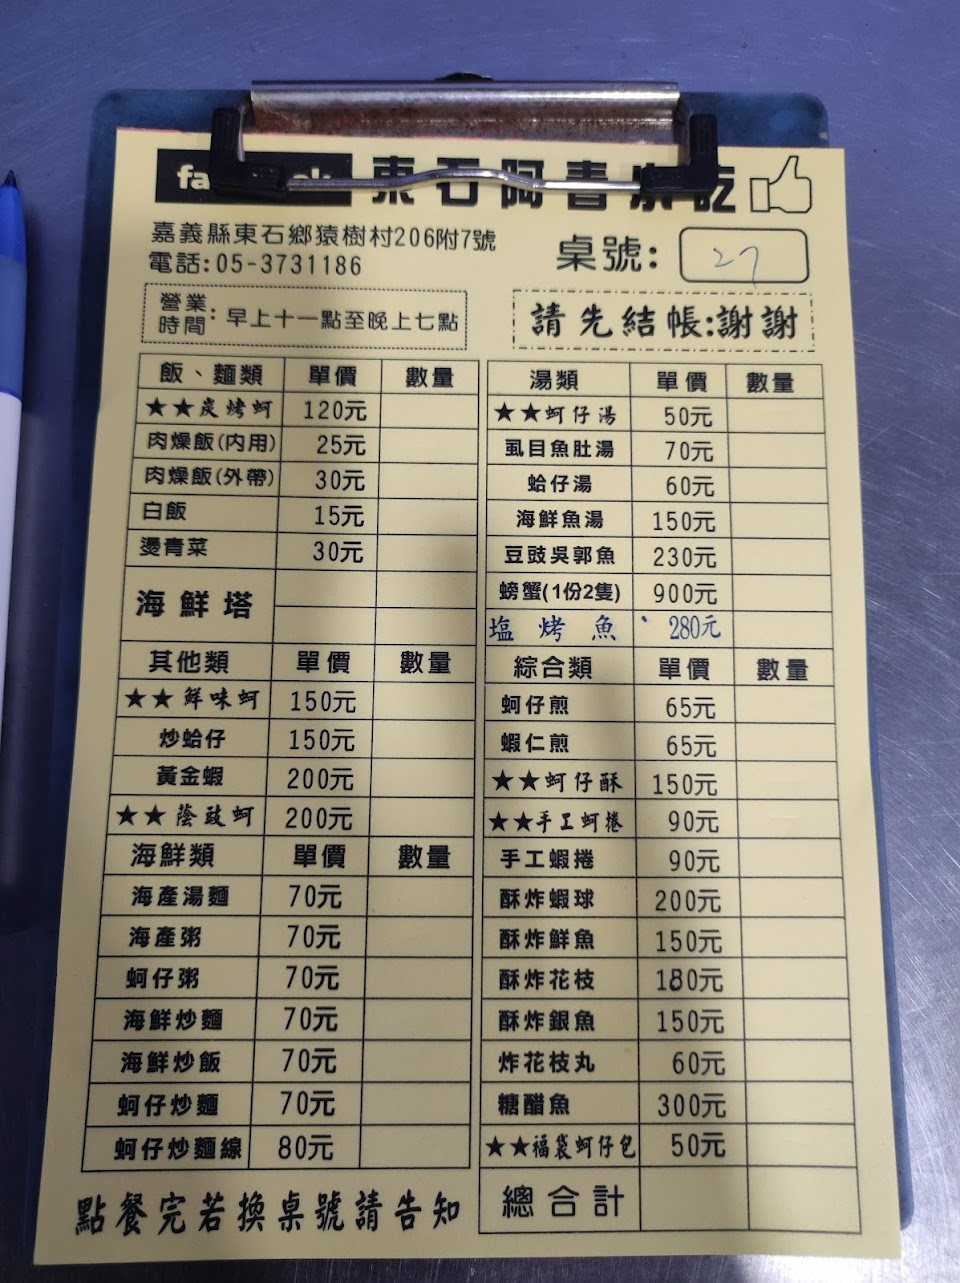 東石阿春
嘉義縣東石鄉猿樹村206附7號
電話:05-3731186
桌號: 27
營業時間: 早上十一點至晚上七點
請先結帳:謝謝
飯、麵類 單價 數量
★★炭烤蚵 120元
肉燥飯(內用) 25元
肉燥飯(外帶) 30元
白飯 15元
燙青菜 30元
海鮮塔
其他類 單價 數量
★★鮮味蚵 150元
炒蛤仔 150元
黃金蝦 200元
★★蔭豉蚵 200元
海鮮類 單價 數量
海產湯麵 70元
海產粥 70元
蚵仔粥 70元
海鮮炒麵 70元
海鮮炒飯 70元
蚵仔炒麵 70元
蚵仔炒麵線 80元
點餐完若換桌號請告知
湯類 單價 數量
★★蚵仔湯 50元
虱目魚肚湯 70元
蛤仔湯 60元
海鮮魚湯 150元
豆豉吳郭魚 230元
螃蟹(1份2隻) 900元
塩烤魚 280元
綜合類 單價 數量
蚵仔煎 65元
蝦仁煎 65元
★★蚵仔酥 150元
★★手工蚵捲 90元
手工蝦捲 90元
酥炸蝦球 200元
酥炸鮮魚 150元
酥炸花枝 180元
酥炸銀魚 150元
炸花枝丸 60元
糖醋魚 300元
★★福袋蚵仔包 50元
總合計